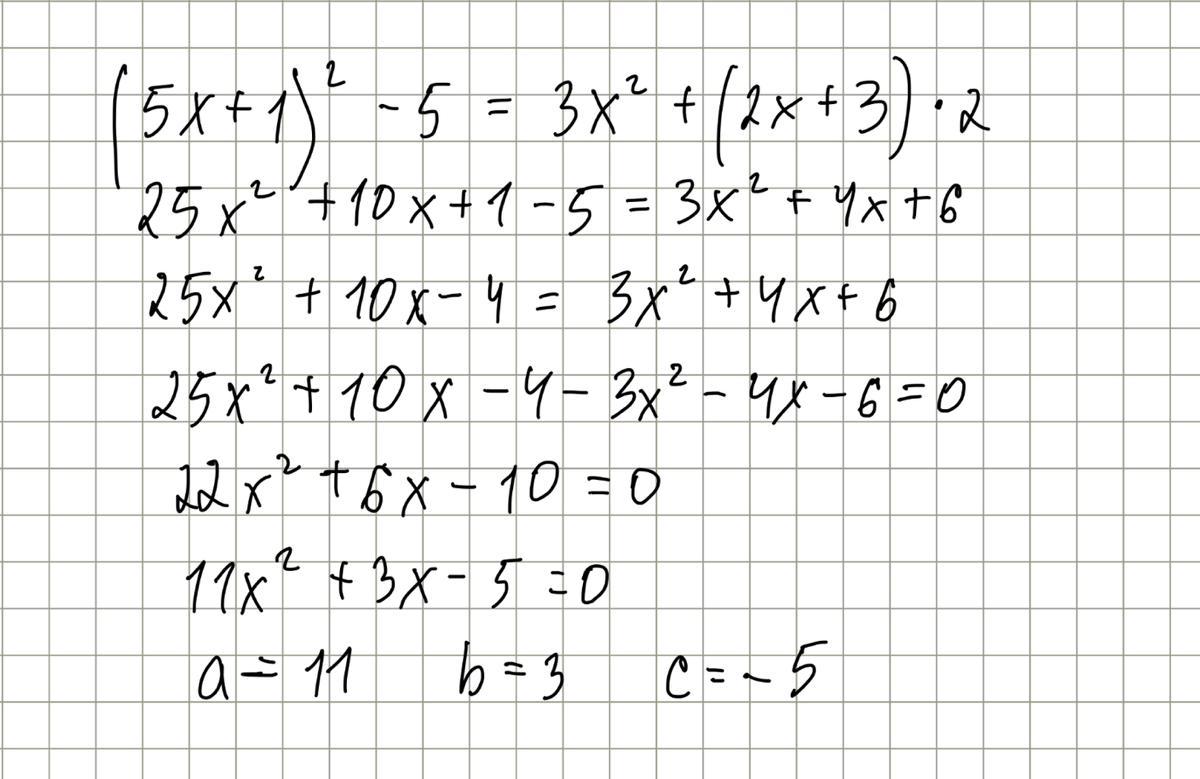 (5x+1)² - 5 = 3x² + (2x+3)·2
25x² + 10x + 1 - 5 = 3x² + 4x + 6
25x² + 10x - 4 = 3x² + 4x + 6
25x² + 10x - 4 - 3x² - 4x - 6 = 0
22x² + 6x - 10 = 0
11x² + 3x - 5 = 0
a = 11 b = 3 c = -5